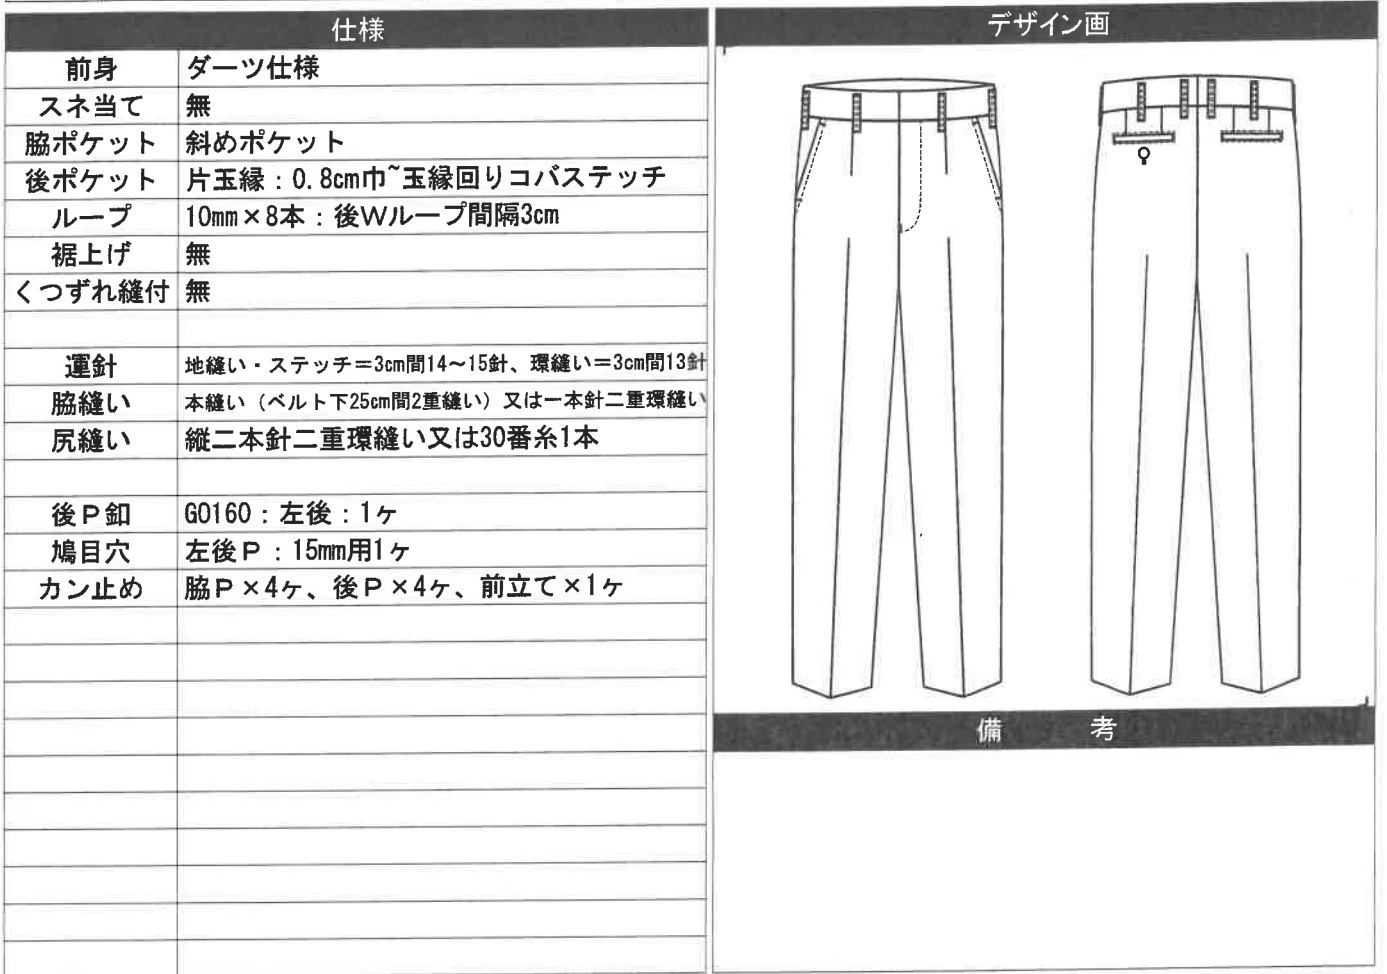 仕様
前身 ダーツ仕様
スネ当て 無
脇ポケット 斜めポケット
後ポケット 片玉縁：0.8cm巾~玉縁回りコバステッチ
ループ 10mm×8本：後Wループ間隔3cm
裾上げ 無
くつずれ縫付 無
運針 地縫い・ステッチ＝3cm間14～15針、環縫い＝3cm間13針
脇縫い 本縫い（ベルト下25cm間2重縫い）又は一本針二重環縫い
尻縫い 縦二本針二重環縫い又は30番糸1本
後Ｐ釦 GO160：左後：1ヶ
鳩目穴 左後Ｐ：15mm用1ヶ
カン止め 脇Ｐ×4ヶ、後Ｐ×4ヶ、前立て×1ヶ
デザイン画
備　考